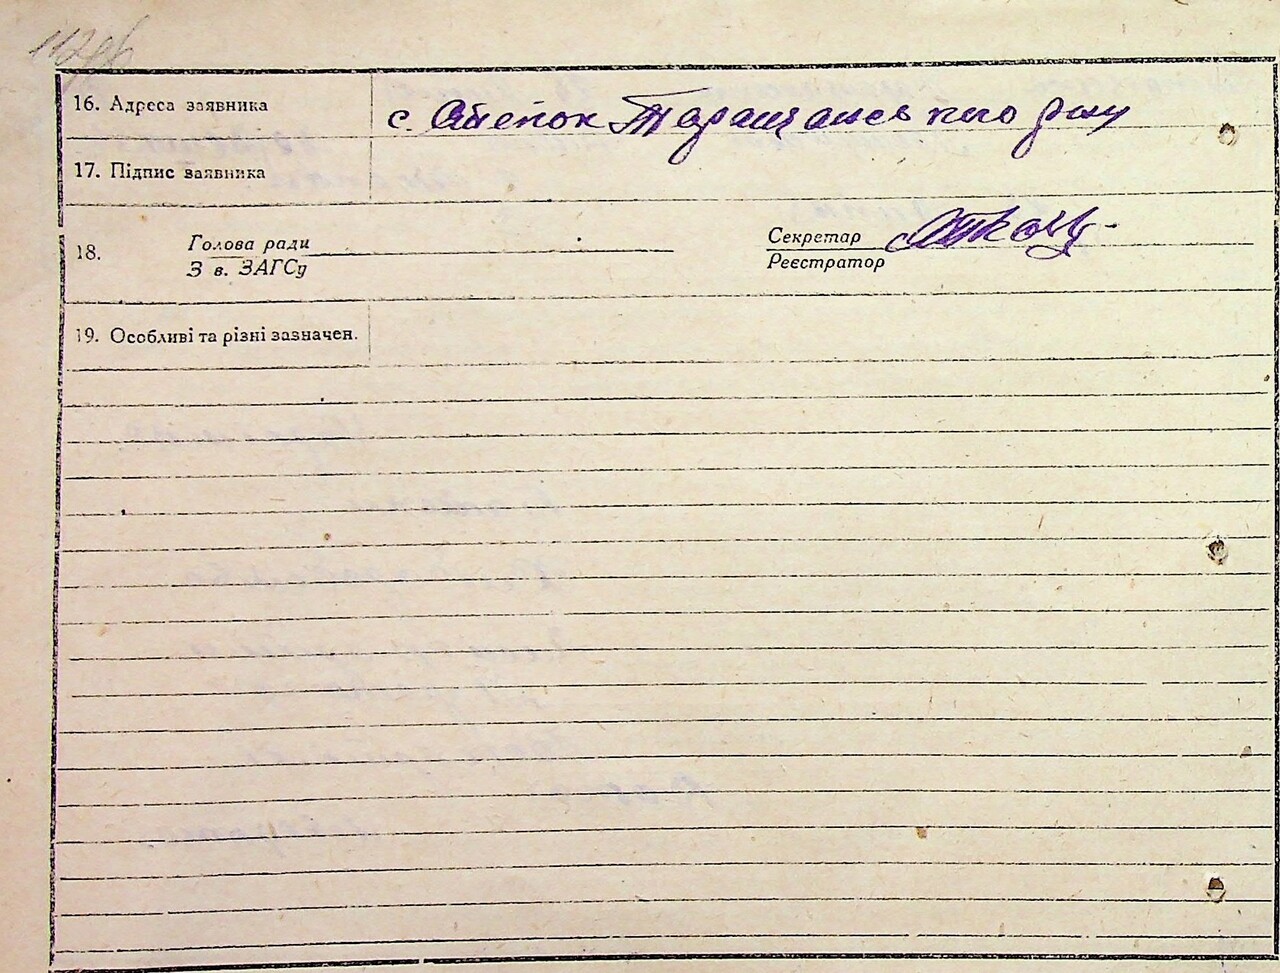 16. Адреса заявника с. Степок Таращанського р-ну
17. Підпис заявника
18. Голова ради
З в. ЗАГСу
Секретар
Реєстратор
19. Особливі та різні зазначен.